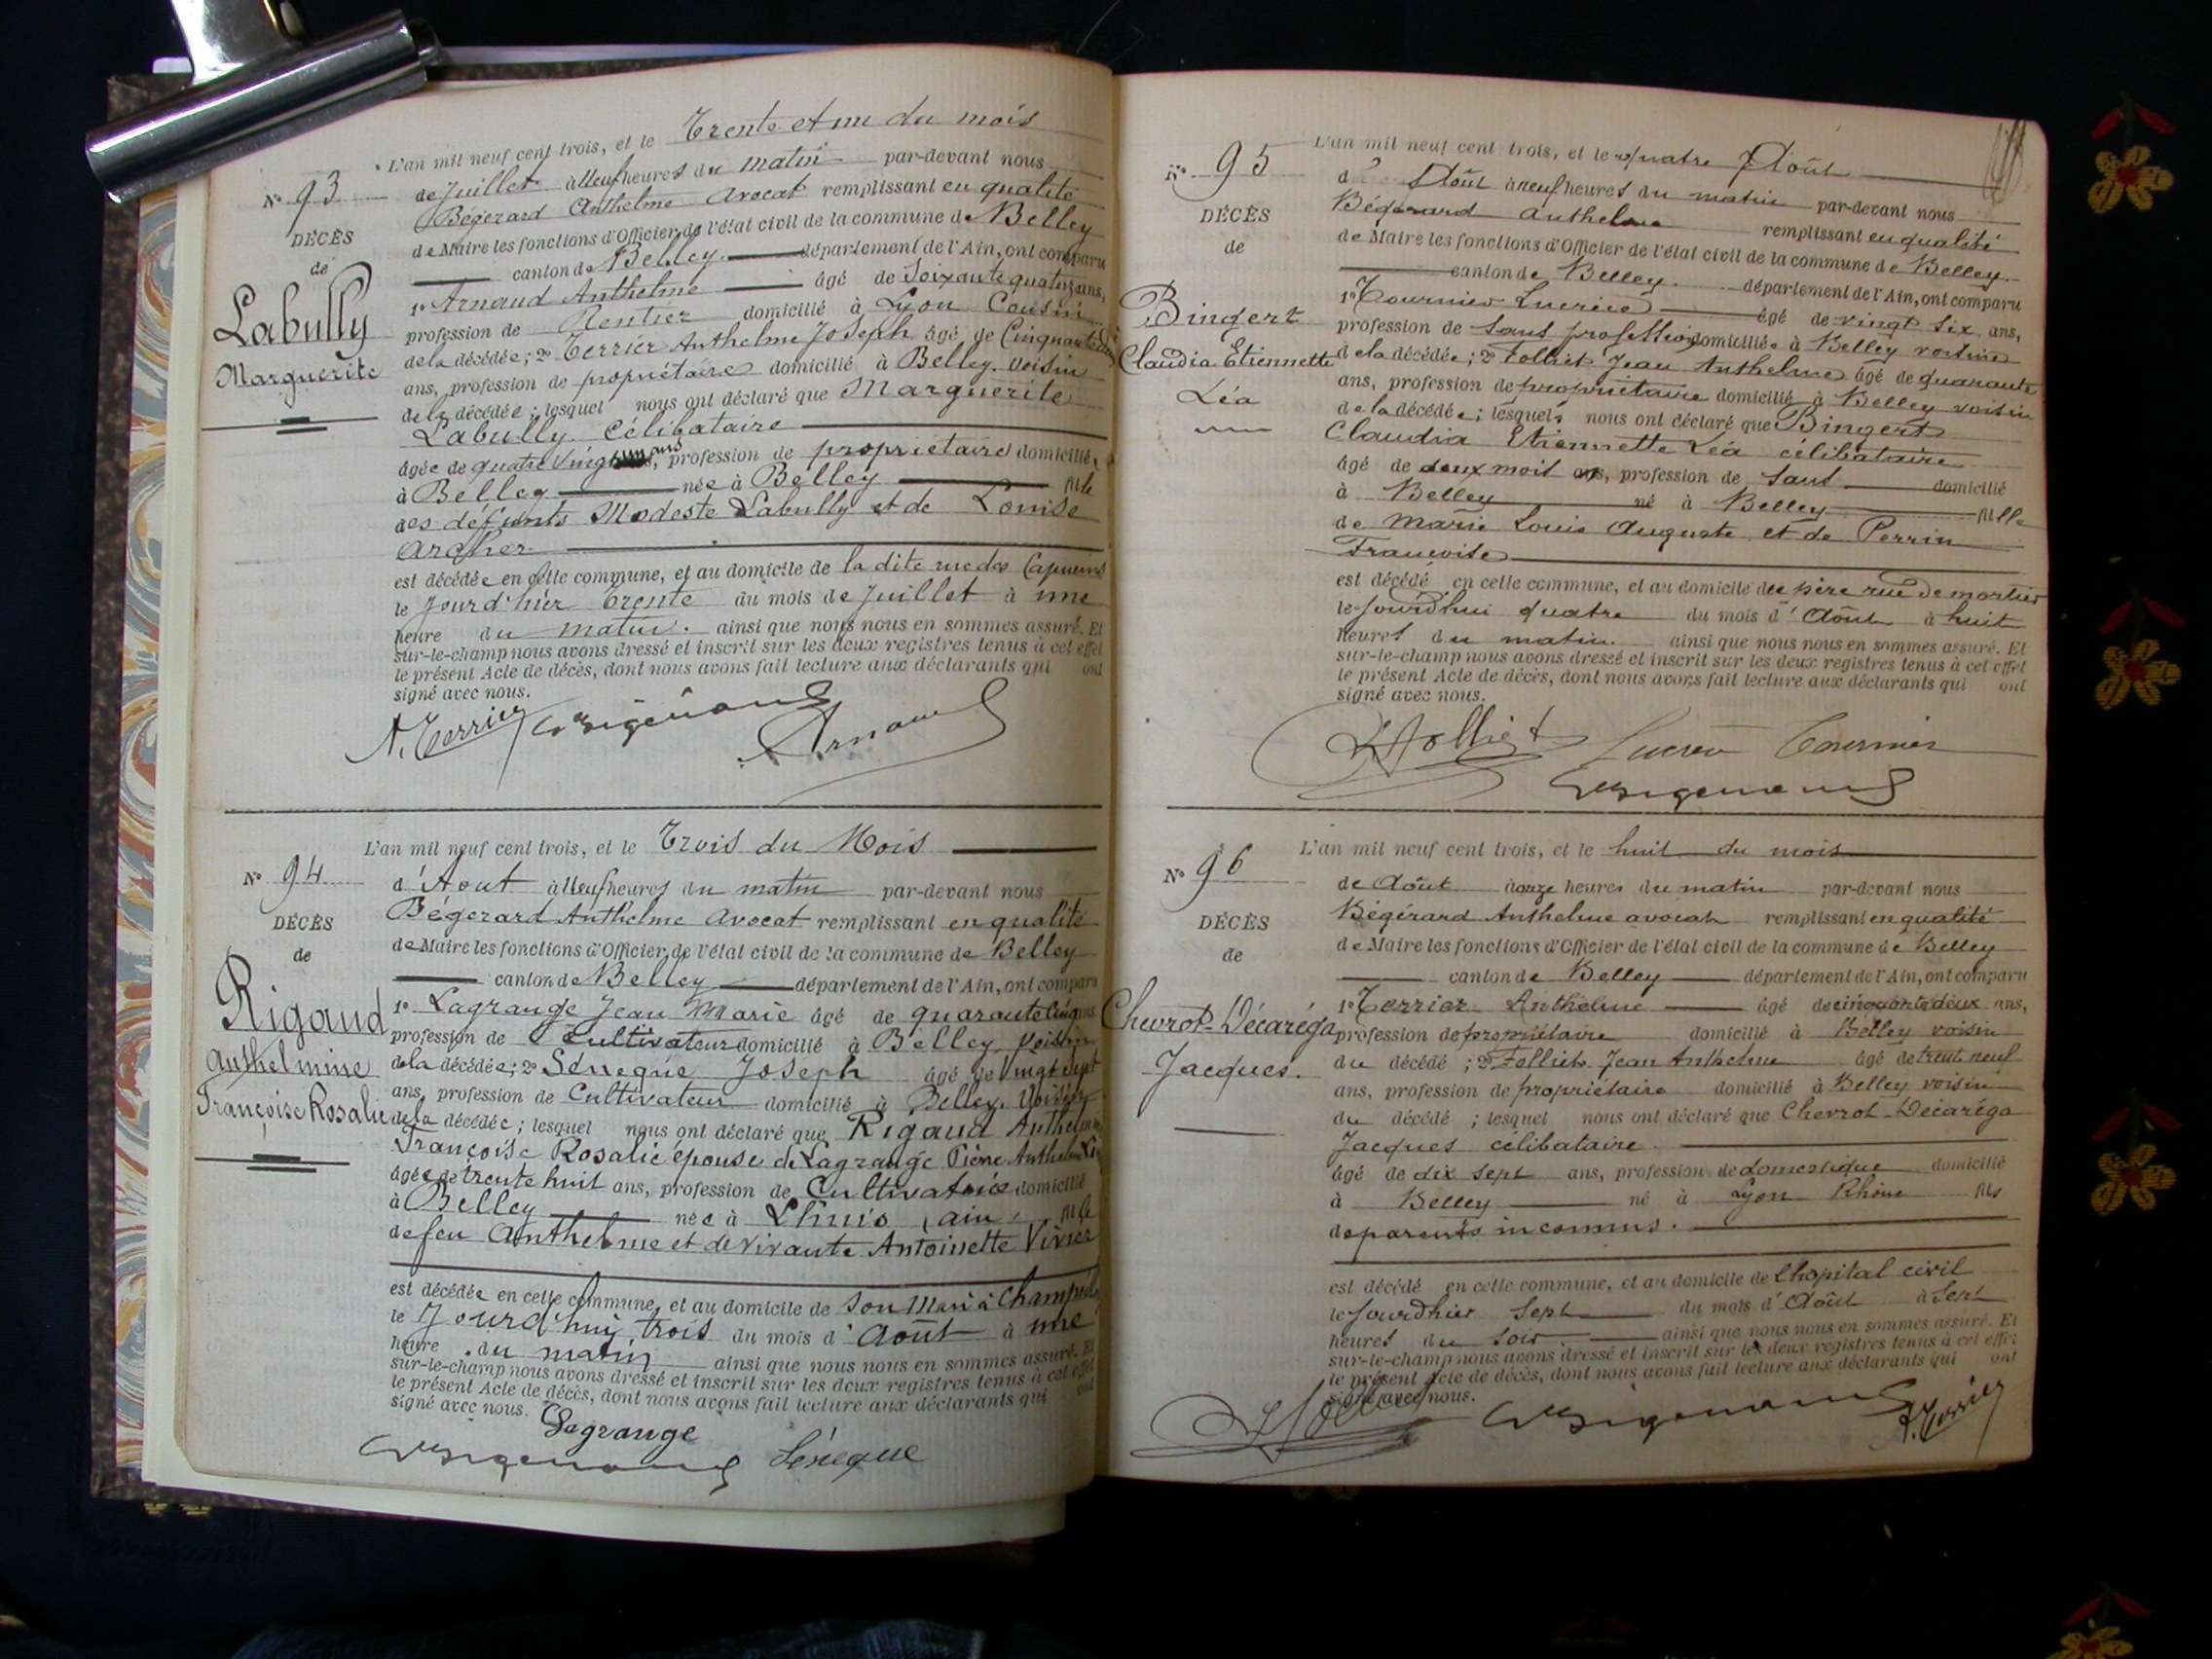 N° 93
DÉCÈS
de
Labully
Marguerite
L'an mil neuf cent trois, et le Trente et un du mois
de Juillet à Neuf heures du matin par-devant nous
Bégerard Anthelme Avocat remplissant en qualité
de Maire les fonctions d'Officier de l'état civil de la commune de Belley
canton de Belley département de l'Ain, ont comparu
1° Arnaud Anthelme âgé de Soixante quatorze ans,
profession de Rentier domicilié à Lyon Cousin
de la décédée; 2° Terrier Anthelme Joseph âgé de Cinquante deux
ans, profession de propriétaire domicilié à Belley. Voisin
de la décédée; lesquel nous ont déclaré que Marguerite
Labully. Célibataire
âgée de quatre vingt ans, profession de propriétaire domicilié
à Belley née à Belley fille
des défunts Modeste Labully et de Louise
Archer
est décédée en cette commune, et au domicile de la dite rue des Capucins
le Jourd'hier Trente du mois de Juillet à une
heure du matin. ainsi que nous nous en sommes assuré. Et
sur-le-champ nous avons dressé et inscrit sur les deux registres tenus à cet effet
le présent Acte de décès, dont nous avons fait lecture aux déclarants qui ont
signé avec nous.
A. Terrier Bégerard Arnaud
N° 94
DÉCÈS
de
Rigaud
Anthelmine
Françoise Rosalie
L'an mil neuf cent trois, et le Trois du Mois
d'Aout à Neuf heures du matin par-devant nous
Bégerard Anthelme Avocat remplissant en qualité
de Maire les fonctions d'Officier de l'état civil de la commune de Belley
canton de Belley département de l'Ain, ont comparu
1° Lagrange Jean Marie âgé de quarante cinq ans
profession de Cultivateur domicilié à Belley Voisin
de la décédée; 2° Sénèque Joseph âgé de vingt sept
ans, profession de Cultivateur domicilié à Belley. Voisin
de la décédée; lesquel nous ont déclaré que Rigaud Anthelmine
Françoise Rosalie épouse de Lagrange Pierre Anthelme
âgée de trente huit ans, profession de Cultivatrice domicilié
à Belley née à Lhuis (ain) fille
de feu Anthelme et de vivante Antoinette Vivier
est décédée en cette commune, et au domicile de son Mari à Champ
le Jourd'hui trois du mois d'Août à une
heure du matin ainsi que nous nous en sommes assuré. Et
sur-le-champ nous avons dressé et inscrit sur les deux registres tenus à cet effet
le présent Acte de décès, dont nous avons fait lecture aux déclarants qui ont
signé avec nous.
Lagrange
Bégerard Sénèque
N° 95
DÉCÈS
de
Bingert
Claudia Etiennette
Léa
L'an mil neuf cent trois, et le quatre Août
d' Août à neuf heures du matin par-devant nous
Bégerard Anthelme remplissant en qualité
de Maire les fonctions d'Officier de l'état civil de la commune de Belley
canton de Belley département de l'Ain, ont comparu
1° Tournier Lucrèce âgé de vingt six ans,
profession de sans profession domiciliée à Belley voisine
de la décédée; 2° Folliet Jean Anthelme âgé de quarante
ans, profession de propriétaire domicilié à Belley voisin
de la décédée; lesquels nous ont déclaré que Bingert
Claudia Etiennette Léa célibataire
âgé de deux mois ans, profession de sans domicilié
à Belley né à Belley fille
de Marie Louis Auguste et de Perrin
Françoise
est décédé en cette commune, et au domicile du père rue de mortier
le jourd'hui quatre du mois d'Août à huit
heures du matin. ainsi que nous nous en sommes assuré. Et
sur-le-champ nous avons dressé et inscrit sur les deux registres tenus à cet effet
le présent Acte de décès, dont nous avons fait lecture aux déclarants qui ont
signé avec nous.
Folliet Tournier
Bégerard
N° 96
DÉCÈS
de
Chevrot-Décaréga
Jacques.
L'an mil neuf cent trois, et le huit du mois
de Août à onze heures du matin par-devant nous
Bégérard Anthelme avocat remplissant en qualité
de Maire les fonctions d'Officier de l'état civil de la commune de Belley
canton de Belley département de l'Ain, ont comparu
1° Terrier Anthelme âgé de cinquante deux ans,
profession de propriétaire domicilié à Belley voisin
du décédé; 2° Folliet Jean Anthelme âgé de trente neuf
ans, profession de propriétaire domicilié à Belley voisin
du décédé; lesquel nous ont déclaré que Chevrot-Décaréga
Jacques célibataire
âgé de dix sept ans, profession de domestique domicilié
à Belley né à Lyon Rhône fils
de parents inconnus.
est décédé en cette commune, et au domicile de l'hopital civil
le jourd'hier sept du mois d'Août à sept
heures du soir. ainsi que nous nous en sommes assuré. Et
sur-le-champ nous avons dressé et inscrit sur les deux registres tenus à cet effet
le présent Acte de décès, dont nous avons fait lecture aux déclarants qui ont
signé avec nous.
Folliet Bégerard A. Terrier